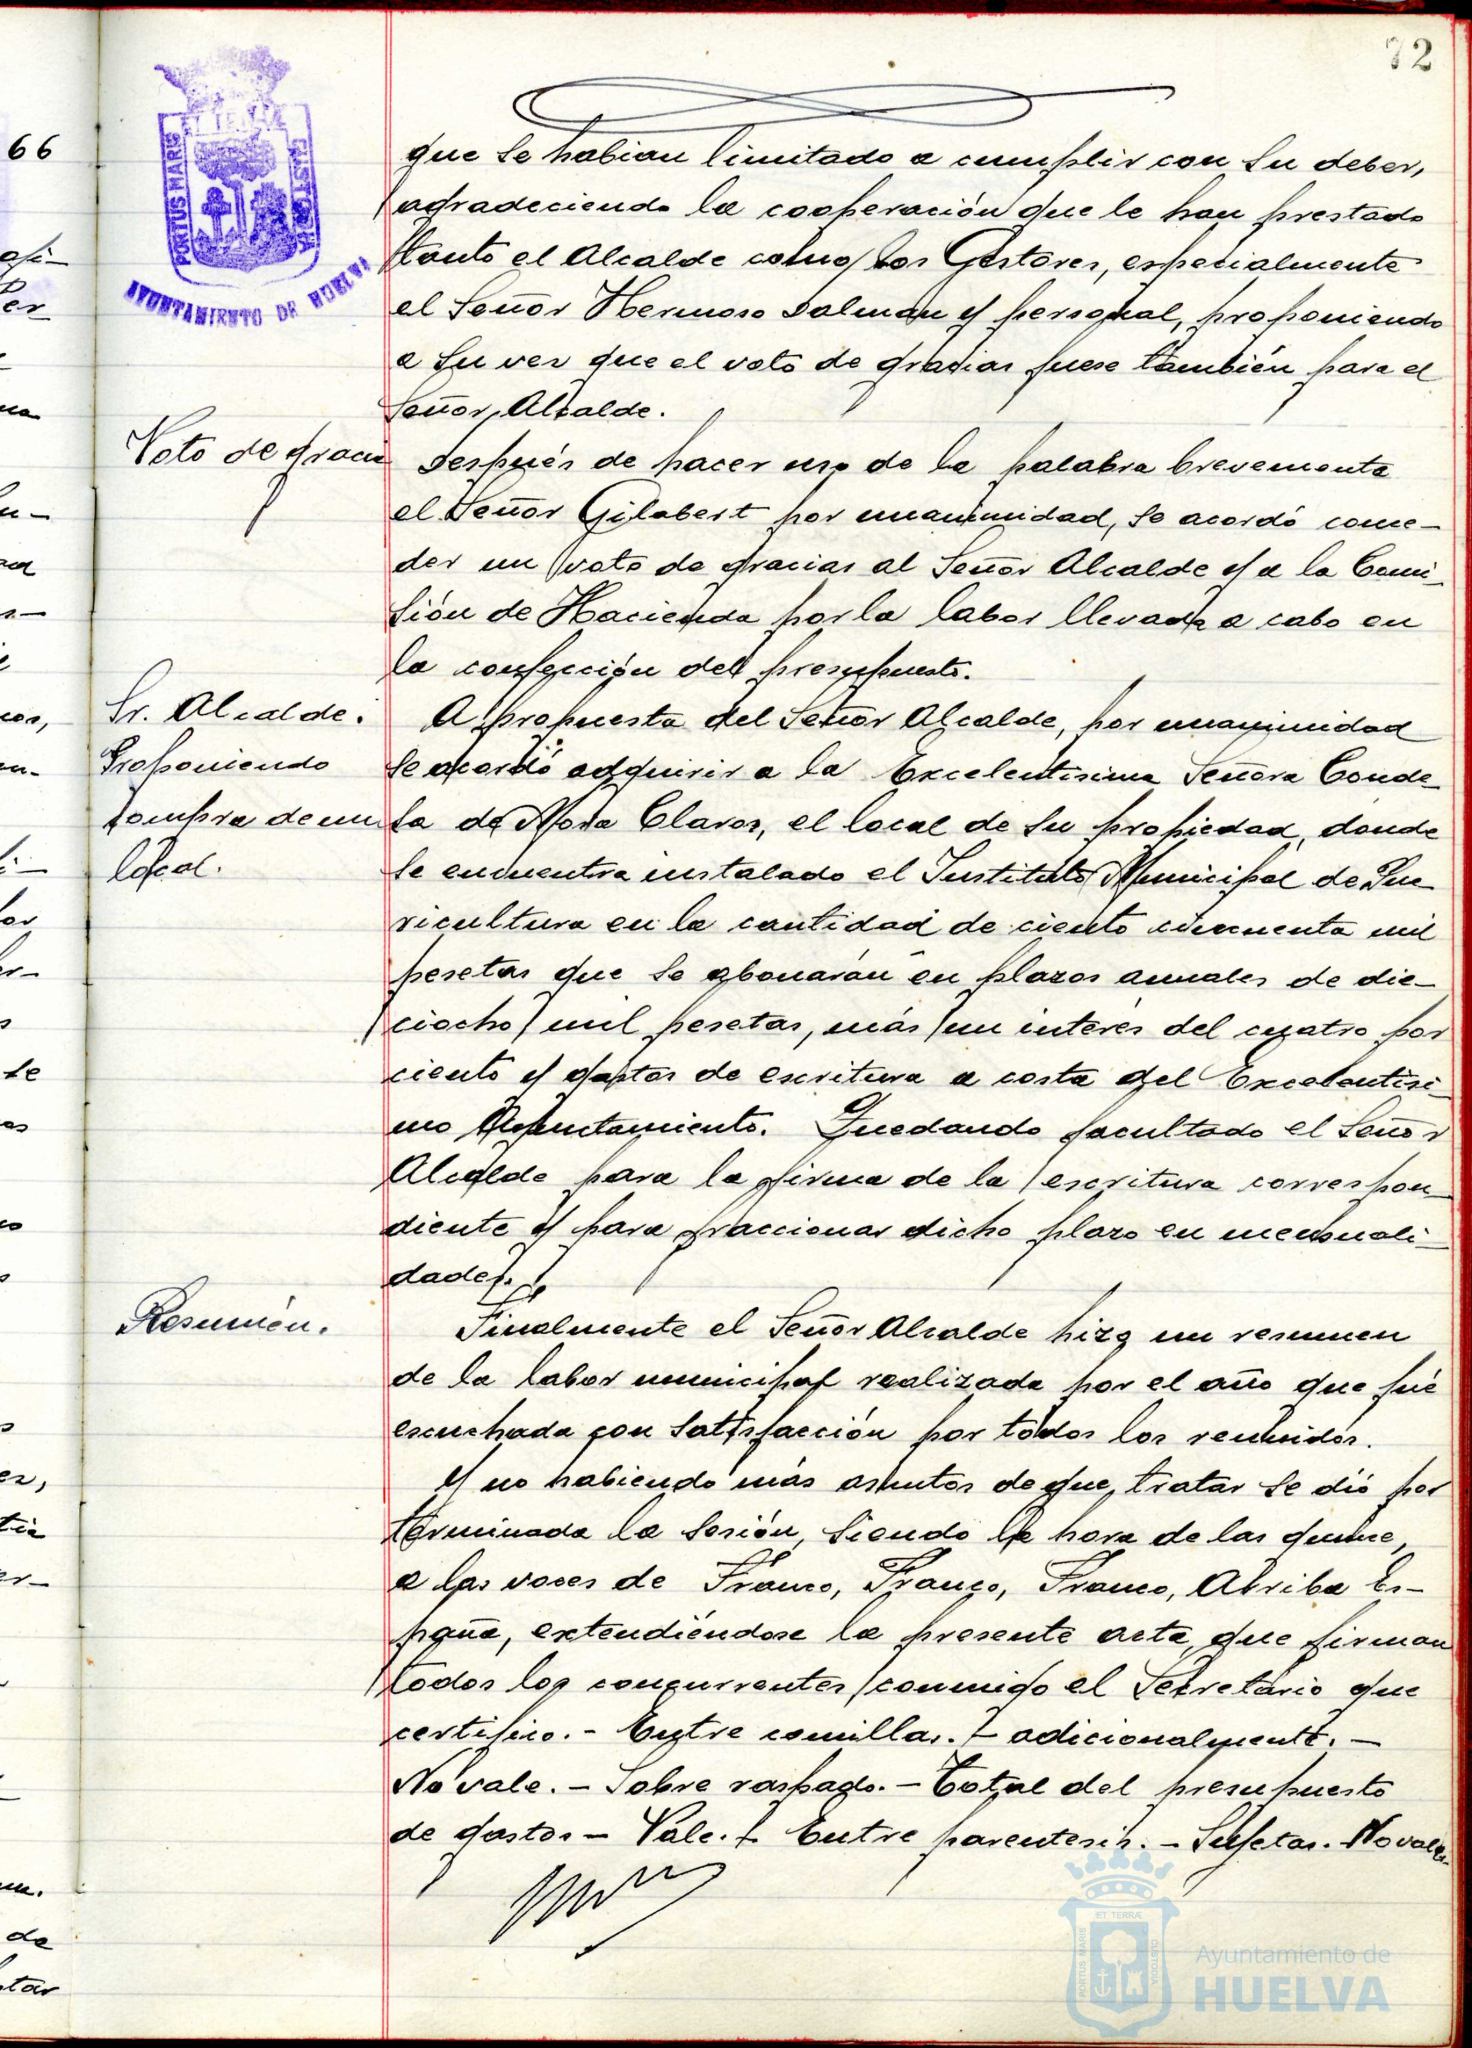 72
66
PORTUS MARIS ET TERRAE CUSTODIA
AYUNTAMIENTO DE HUELVA
que se habian limitado a cumplir con su deber,
agradeciendo la cooperación que le han prestado
tanto el Alcalde como los Gestores, especialmente
el Señor Hermoso Dalman y personal, proponiendo
a su vez que el voto de gracias fuese también para el
Señor Alcalde.
Voto de gracia
Después de hacer uso de la palabra brevemente
el Señor Gilabert por unanimidad, se acordó conce-
der un voto de gracias al Señor Alcalde y a la Comi-
sión de Hacienda por la labor llevada a cabo en
la confección del presupuesto.
Sr. Alcalde.
Proponiendo
compra de un
local.
A propuesta del Señor Alcalde, por unanimidad
se acordó adquirir a la Excelentisima Señora Conde-
sa de Mora Claros, el local de su propiedad, donde
se encuentra instalado el Instituto Municipal de Pue
ricultura en la cantidad de ciento cincuenta mil
pesetas que se abonarán en plazos anuales de die-
ciocho mil pesetas, más un interés del cuatro por
ciento y gastos de escritura a costa del Excelentisi-
mo Ayuntamiento. Quedando facultado el Señor
Alcalde para la firma de la escritura correspon-
diente y para fraccionar dicho plazo en mensuali-
dades.
Resumén.
Finalmente el Señor Alcalde hizo un resumen
de la labor municipal realizada por el año que fué
escuchada con satisfacción por todos los reunidos.
Y no habiendo más asuntos de que tratar se dió por
terminada la sesión, siendo la hora de las quince,
a las voces de Franco, Franco, Franco, Arriba Es-
paña, extendiéndose la presente acta, que firman
todos los concurrentes conmigo el Secretario que
certifico. - Entre comillas. - adicionalmente. -
No vale. - Sobre raspado. - Total del presupuesto
de gastos - Vale. - Entre parentesis. - Sujetas. No vale.
PORTUS MARIS ET TERRAE CUSTODIA
Ayuntamiento de
HUELVA